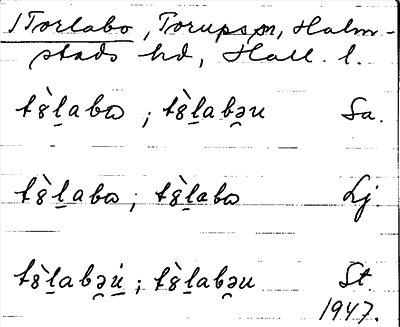 1 Torlabo, Torups sn, Halm-
stads hd, Hall. l.
tȣ̀l̠abɷ ; tȣ̀l̠abə̯u Sa.
tȣ̀l̠abɷ ; tȣ̀l̠abɷ Lj.
tȣ̀l̠abə̯u̠̇ ; tȣ̀l̠abə̯u St.
1947.